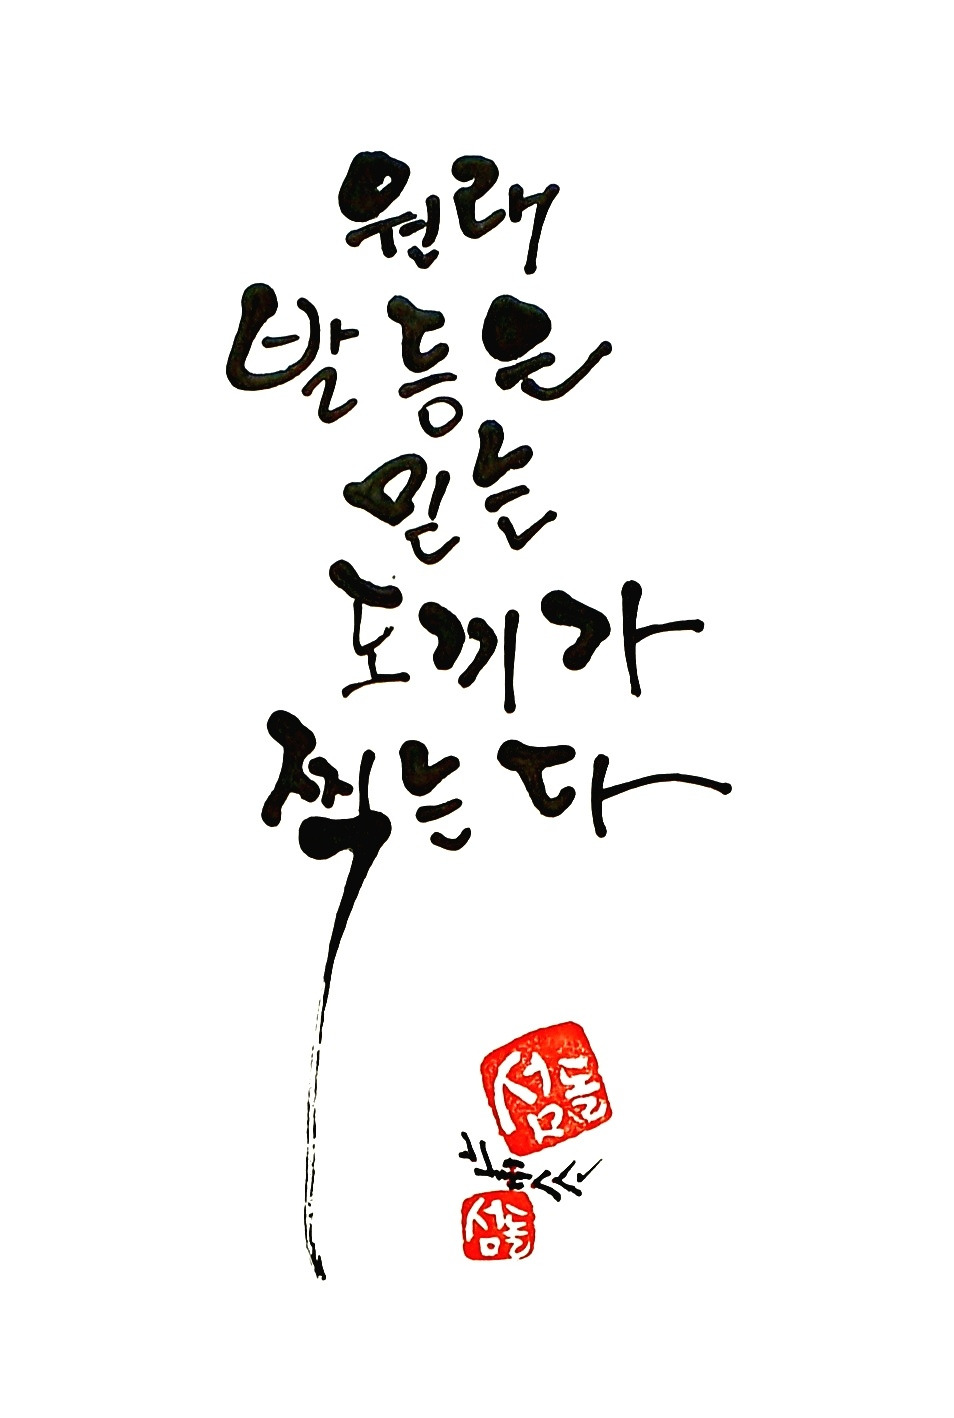 원래
발등은
믿는
도끼가
찍는다
섬돌
섬돌